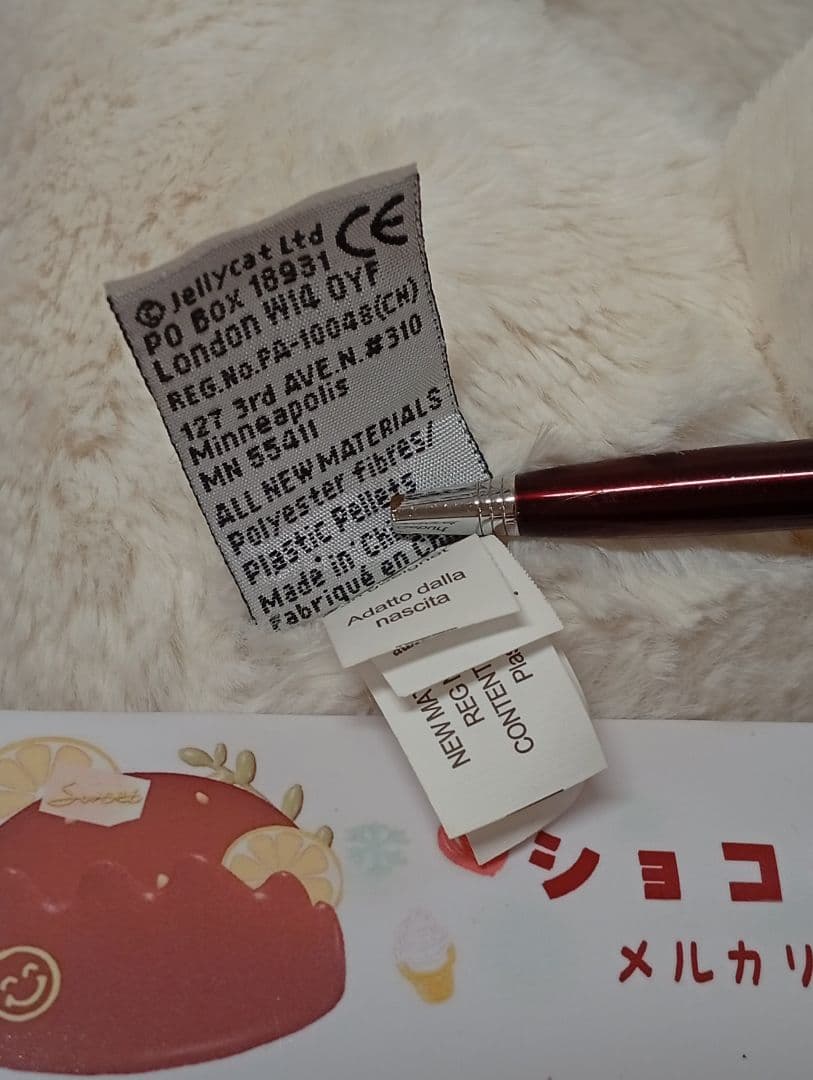 © Jellycat Ltd CE
PO BOX 18931
London W14 0YF
REG.No.PA-10048(CN)
127 3rd AVE.N.#310
Minneapolis
MN 55411
ALL NEW MATERIALS
Polyester fibres/
Plastic Pellets
Made in CH
Fabriqué en Ch
Adatto dalla
nascita
NEW MA
REG
CONTENT
Plas
Sweet
ショコ
メルカリ